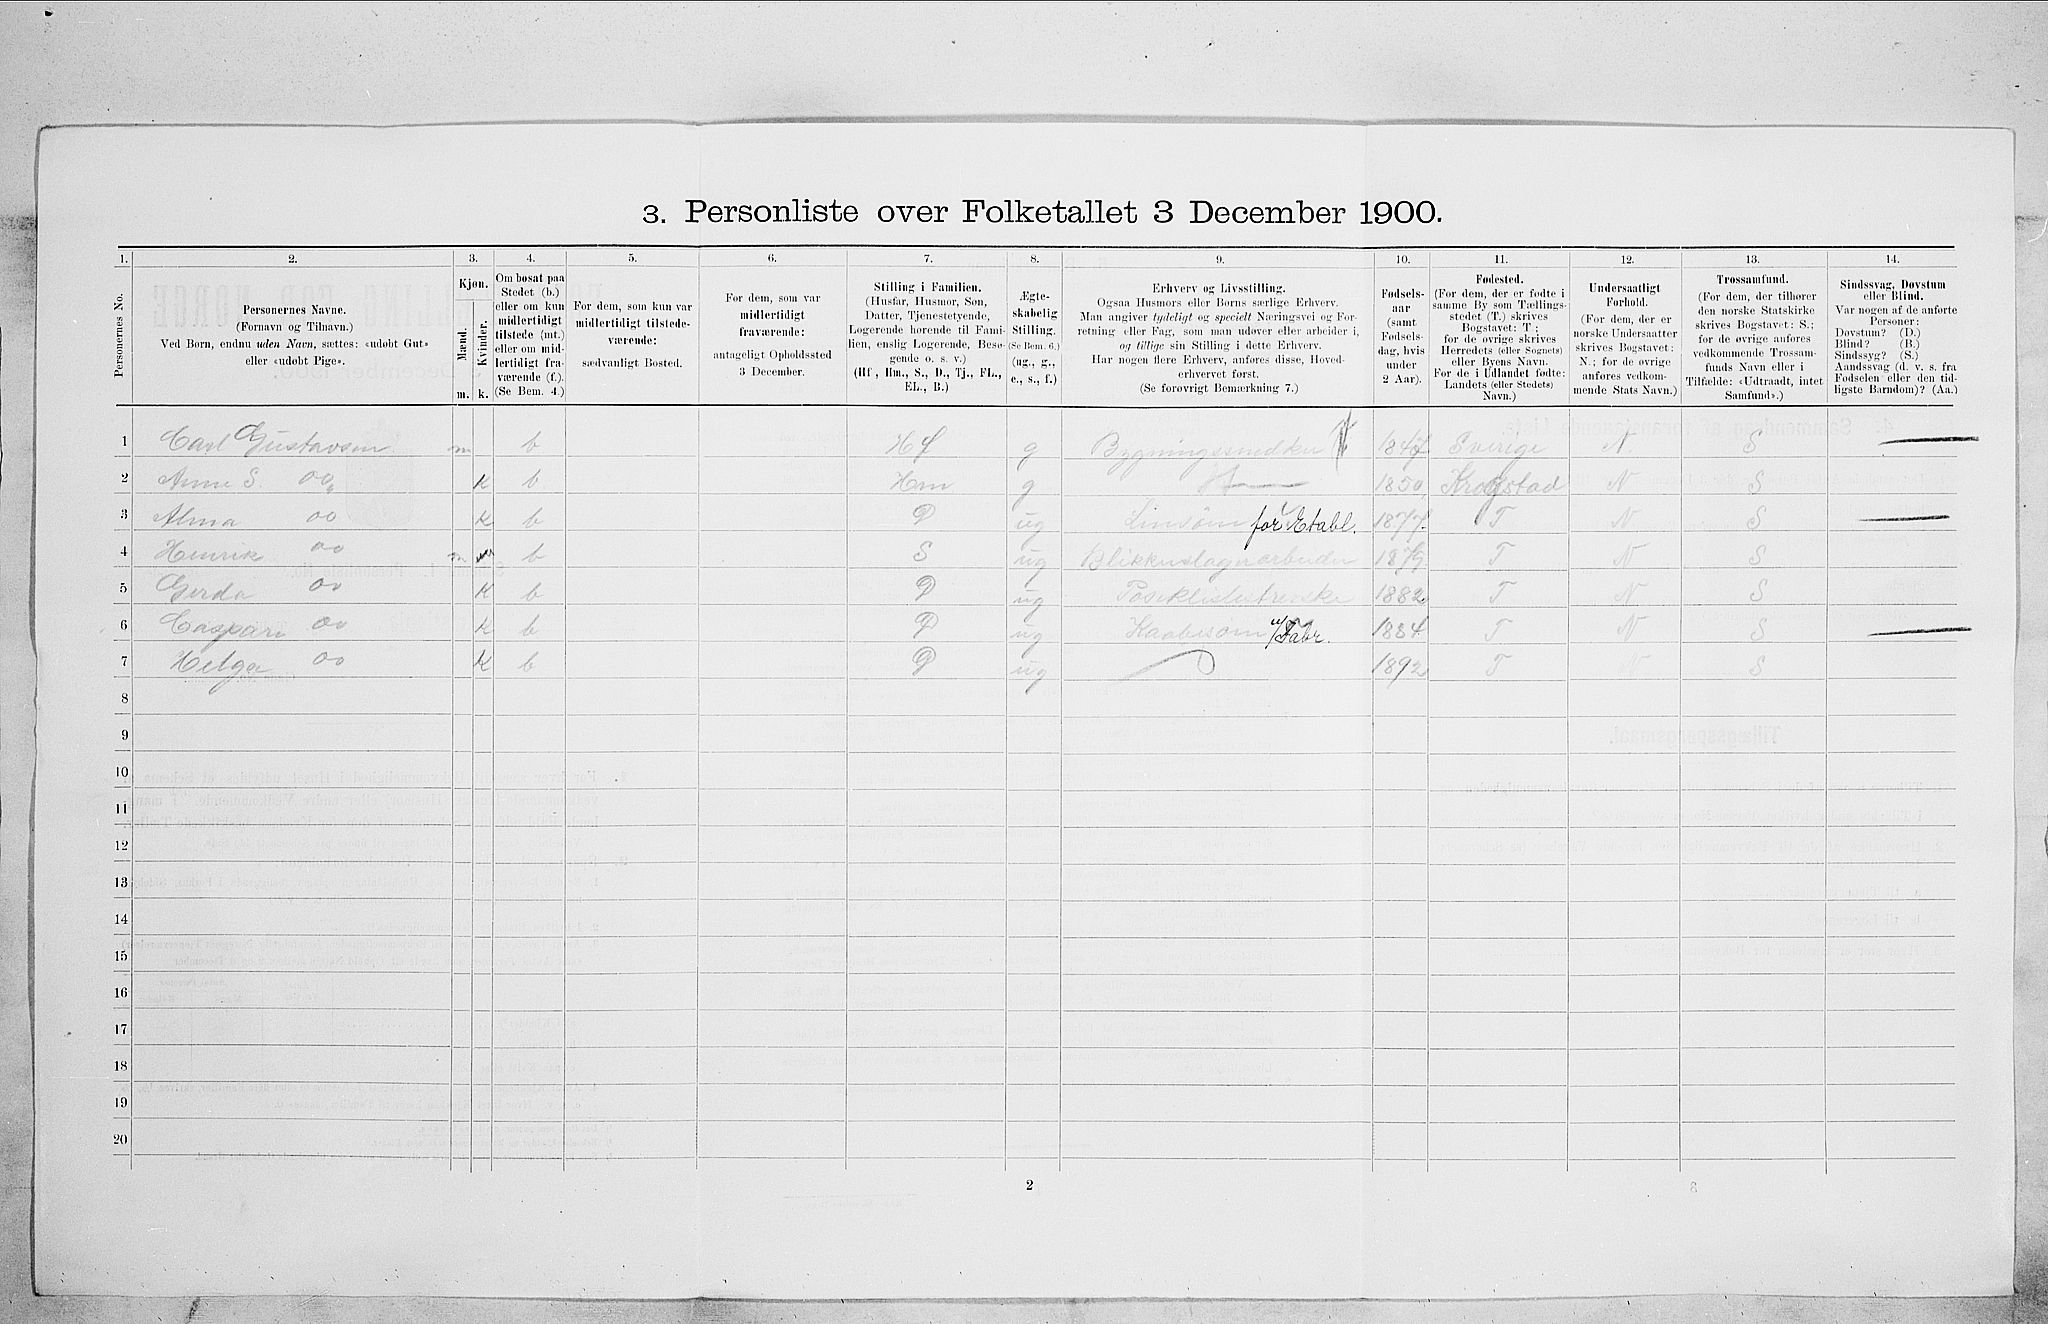 3. Personliste over Folketallet 3 December 1900.
1. 2. 3. 4. 5. 6. 7. 8. 9. 10. 11. 12. 13. 14.
Personernes No.
Personernes Navne.
(Fornavn og Tilnavn.)
Ved Børn, endnu uden Navn, sættes: «udøbt Gut»
eller «udøbt Pige».
Kjøn.
Mænd.
Kvinder.
m. k.
Om bosat paa
Stedet (b.)
eller om kun
midlertidigt
tilstede (mt.)
eller om mid-
lertidigt fra-
værende (f.).
(Se Bem. 4.)
For dem, som kun var
midlertidigt tilstede-
værende:
sædvanligt Bosted.
For dem, som var
midlertidigt
fraværende:
antageligt Opholdssted
3 December.
Stilling i Familien.
(Husfar, Husmor, Søn,
Datter, Tjenestetyende,
Logerende hørende til Fami-
lien, enslig Logerende, Besø-
gende o. s. v.)
(Hf, Hm., S., D., Tj., FL.,
EL., B.)
Ægte-
skabelig
Stilling.
(Se Bem. 6.)
(ug., g.,
e., s., f.)
Erhverv og Livsstilling.
Ogsaa Husmors eller Børns særlige Erhverv.
Man angiver tydeligt og specielt Næringsvei og For-
retning eller Fag, som man udøver eller arbeider i,
og tillige sin Stilling i dette Erhverv.
Har nogen flere Erhverv, anføres disse, Hoved-
erhvervet først.
(Se forøvrigt Bemærkning 7.)
Fødsels-
aar
(samt
Fødsels-
dag, hvis
under
2 Aar).
Fødested.
(For dem, der er fødte i
samme By som Tællings-
stedet (T.) skrives
Bogstavet: T;
for de øvrige skrives
Herredets (eller Sognets)
eller Byens Navn.
For de i Udlandet fødte:
Landets (eller Stedets)
Navn.)
Undersaatligt
Forhold.
(For dem, der er
norske Undersaatter
skrives Bogstavet:
N.; for de øvrige
anføres vedkom-
mende Stats Navn.)
Trossamfund.
(For dem, der tilhører
den norske Statskirke
skrives Bogstavet: S.;
for de øvrige anføres
vedkommende Trossam-
funds Navn eller i
Tilfælde: «Udtraadt, intet
Samfund».)
Sindssvag, Døvstum
eller Blind.
Var nogen af de anførte
Personer:
Døvstum? (D.)
Blind? (B.)
Sindssyg? (S.)
Aandssvag (d. v. s. fra
Fødselen eller den tid-
ligste Barndom)? (Aa.)
1 Carl Gustavsen m b Hf g Bygningssnedker 1847 Sverige N. S
2 Anne S. oo k b Hm g 1850 Krogstad N S
3 Alma oo k b D ug Linsøm for Etabl. 1877 T N S
4 Henrik oo m b S ug Blikkenslagerarbeider 1879 T N S
5 Gerda oo k b D ug 1882 T N S
6 Caspara oo k b D ug Kaabesøm v/Fabr. 1884 T N S
7 Helga oo k b D ug 1892 T N S
8
9
10
11
12
13
14
15
16
17
18
19
20
2